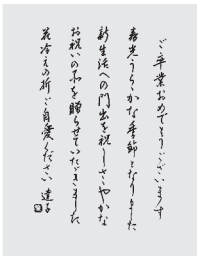 ご卒業おめでとうございます
春光うららかな季節となりました
新生活への門出を祝し ささやかな
お祝いの品を贈らせていただきました
花冷えの折 ご自愛ください 達子